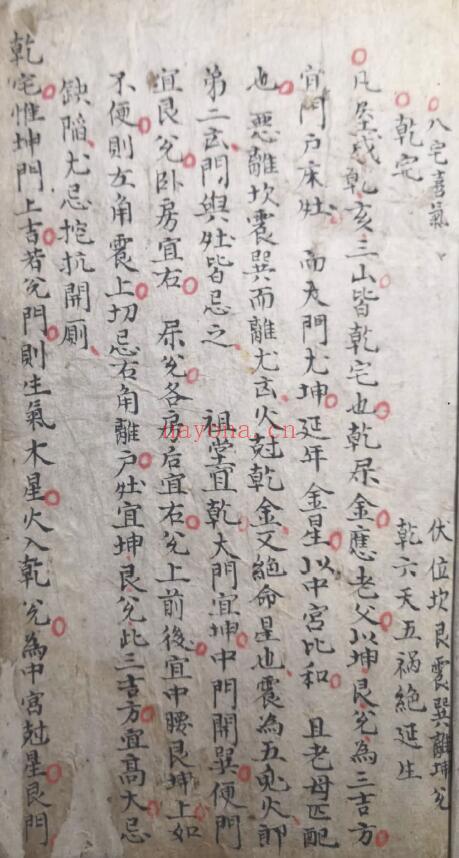 八宅喜氣
伏位坎艮震巽離坤兌
乾宅
乾六天五祸絶延生
凡坐戌乾亥三山皆乾宅也乾屬金應老父以坤艮兌為三吉方
宜門户床灶 而大門尤坤延年金星以中宮比和 且老母匹配
也 惡離坎震巽而離尤凶火尅乾金又絶命星也震為五鬼火即
第二凶門與灶皆忌之 祖堂宜乾大門宜坤中門開巽便門
宜艮兌卧房宜右 兌各房后宜右兌上前後宜中腰艮坤上如
不便則左角震上切忌右角離户灶宜坤艮兌此三吉方宜高大忌
缺陷尤忌挖坑開厠
乾宅惟坤門上吉若兌門則生氣木星火入乾兌為中宮尅星艮門
nayona.cn